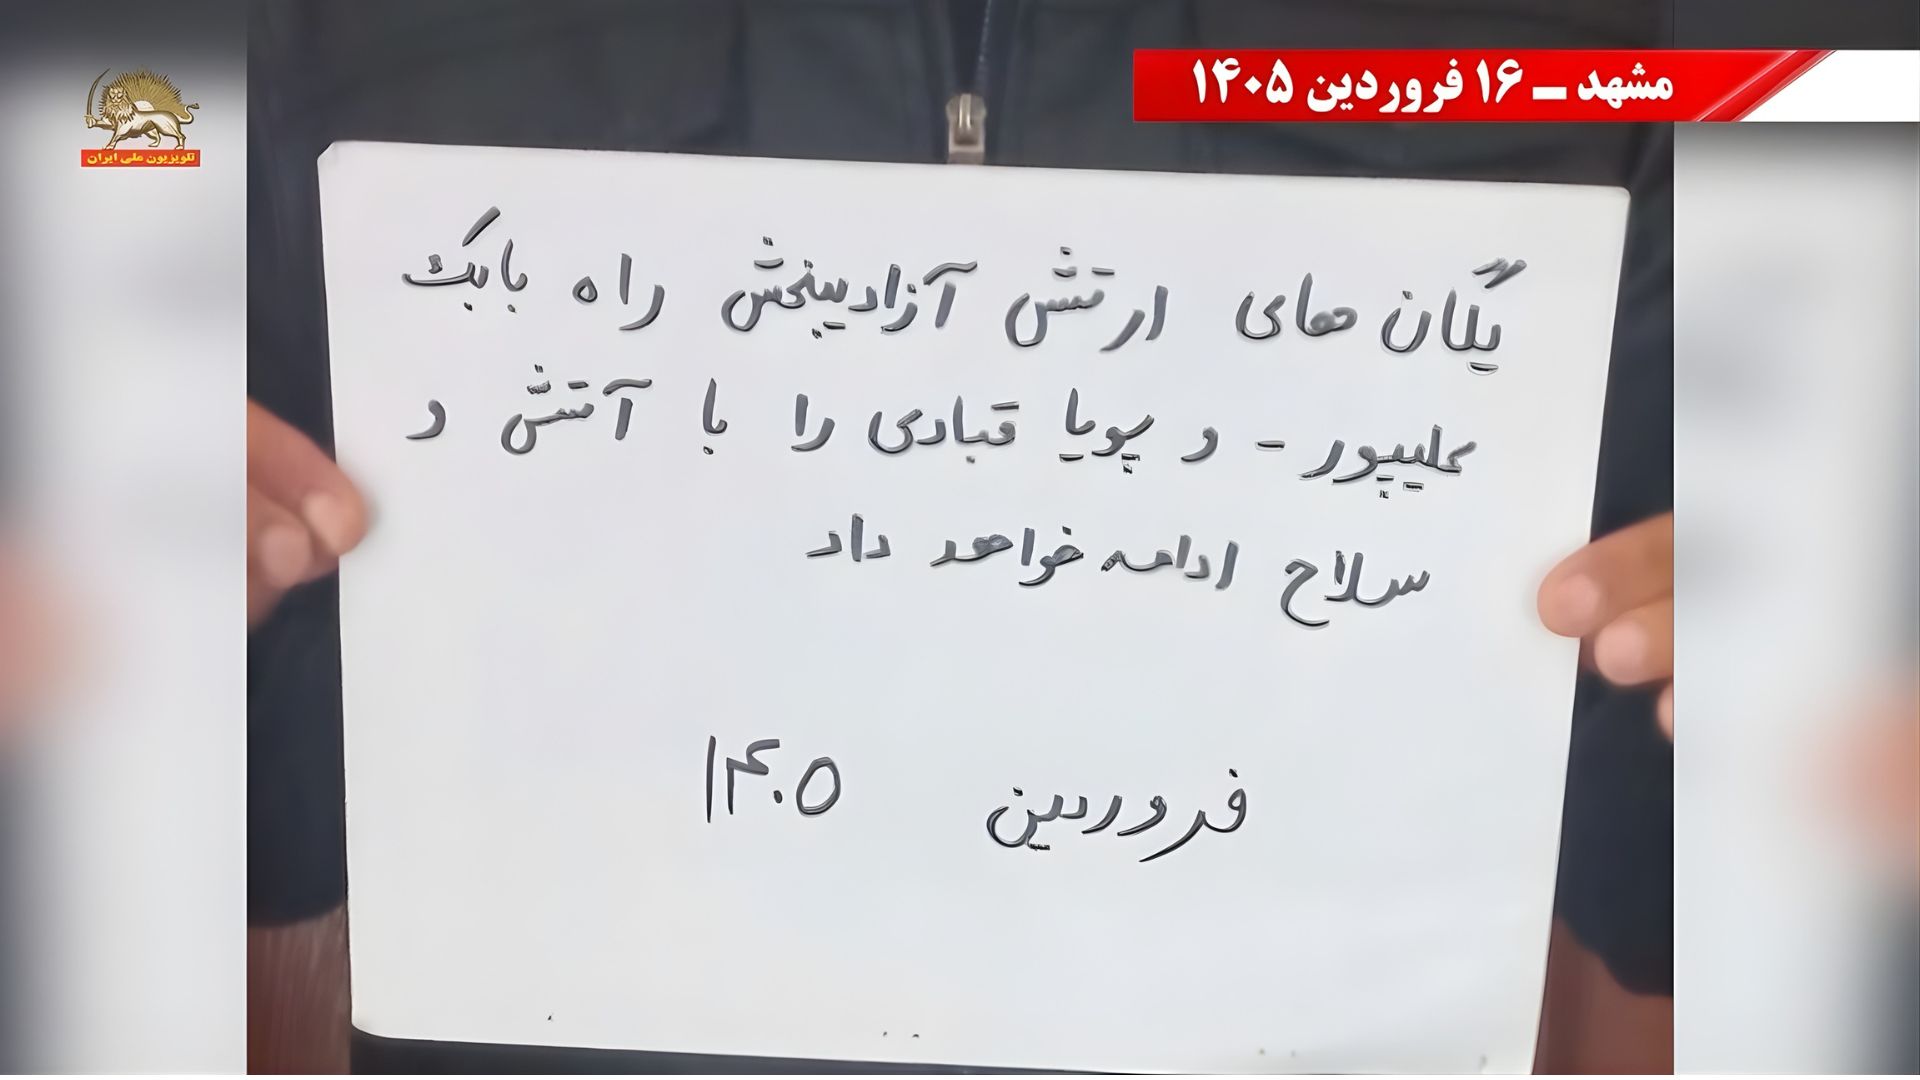 مشهد ــ ۱۶ فروردین ۱۴۰۵
تلویزیون ملی ایران
یگان های ارتش آزادیبخش راه بابک
علیپور - و پویا قبادی را با آتش و
سلاح ادامه خواهد داد
فروردین ۱۴۰۵